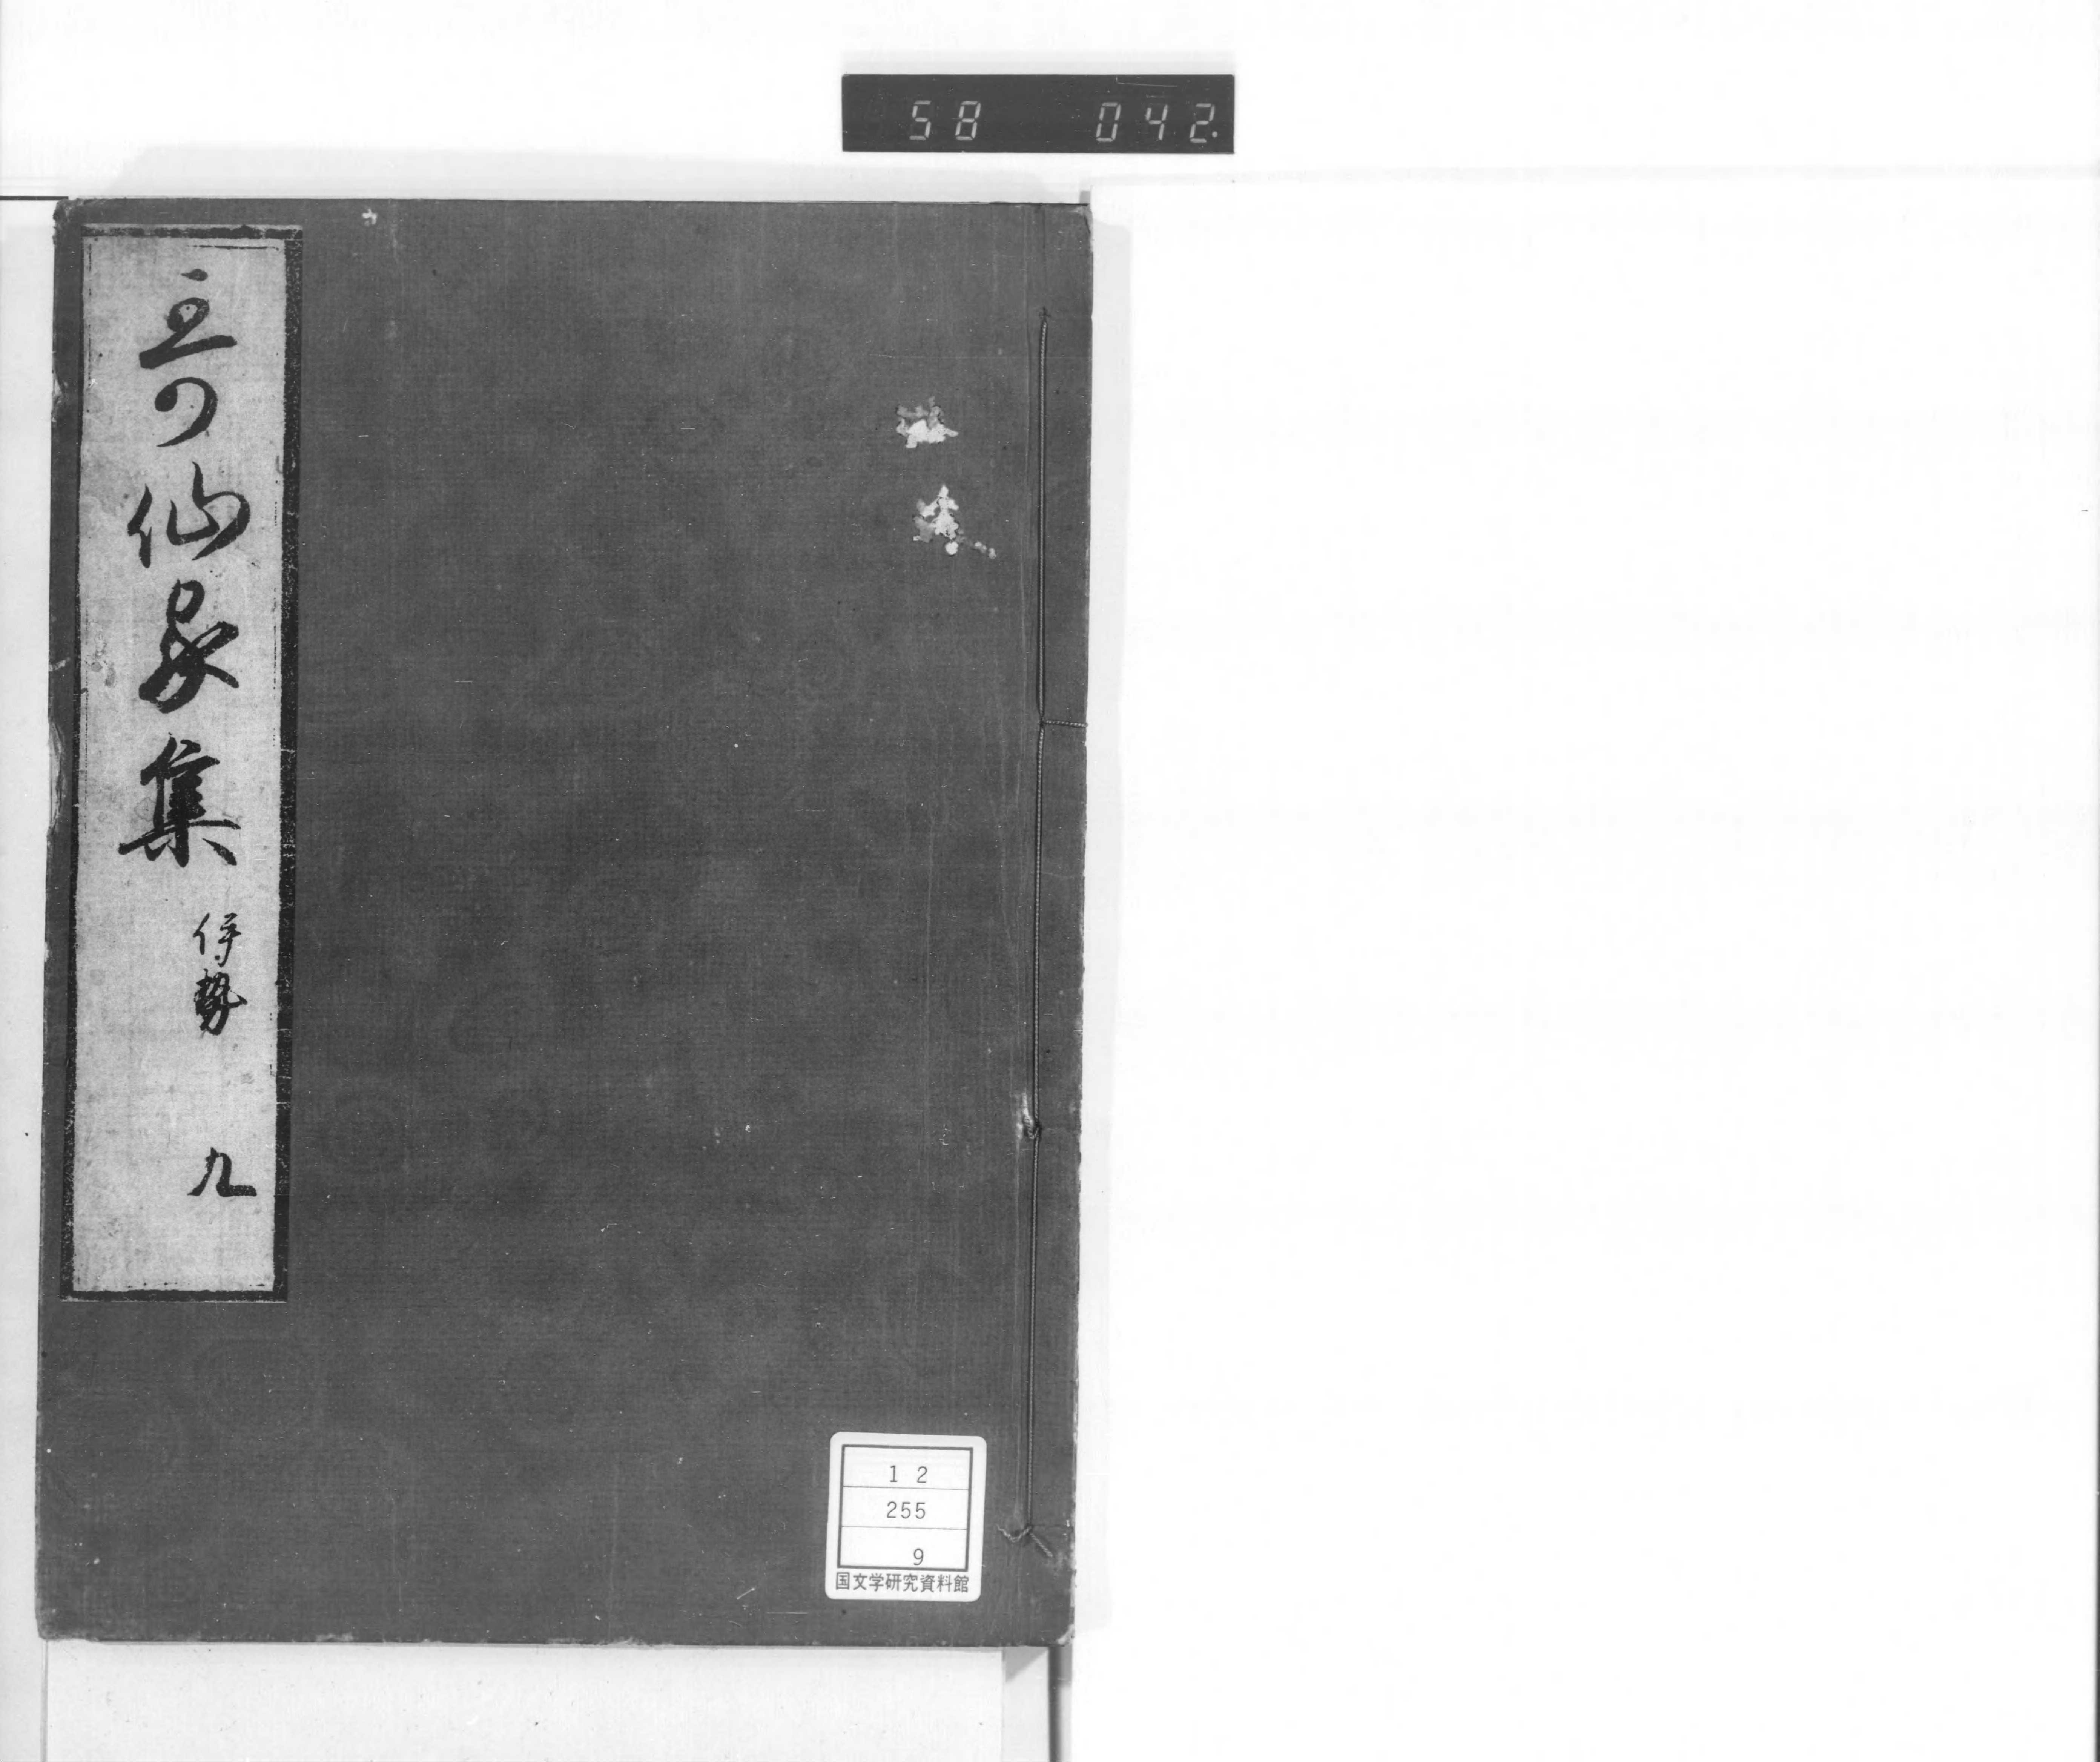 58 042.
哥仙家集
伊勢
九
12
255
9
国文学研究資料館